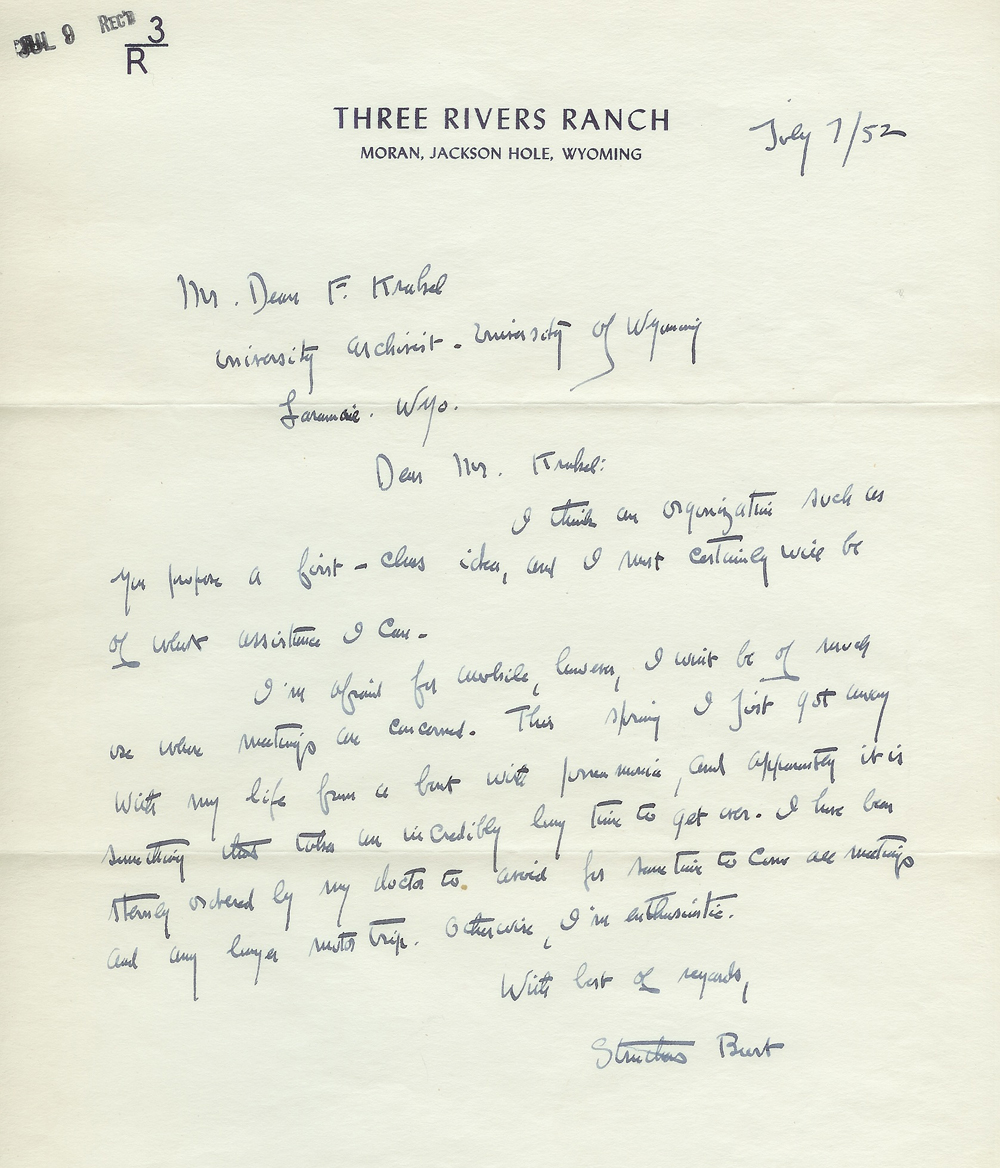 JUL 9 REC'D
3
R
THREE RIVERS RANCH
MORAN, JACKSON HOLE, WYOMING
July 7/52
Mr. Dean F. Krakel
University Archivist - University of Wyoming
Laramie. Wyo.
Dear Mr. Krakel:
I think an organization such as
you propose a first-class idea, and I most certainly will be
of what assistance I can.
I'm afraid for awhile, however, I won't be of much
use where meetings are concerned. This spring I just got away
with my life from a bout with pneumonia, and apparently it is
something that takes an incredibly long time to get over. I have been
sternly ordered by my doctor to avoid for some time to come all meetings
and any longer motor trip. Otherwise, I'm enthusiastic.
With best of regards,
Struthers Burt